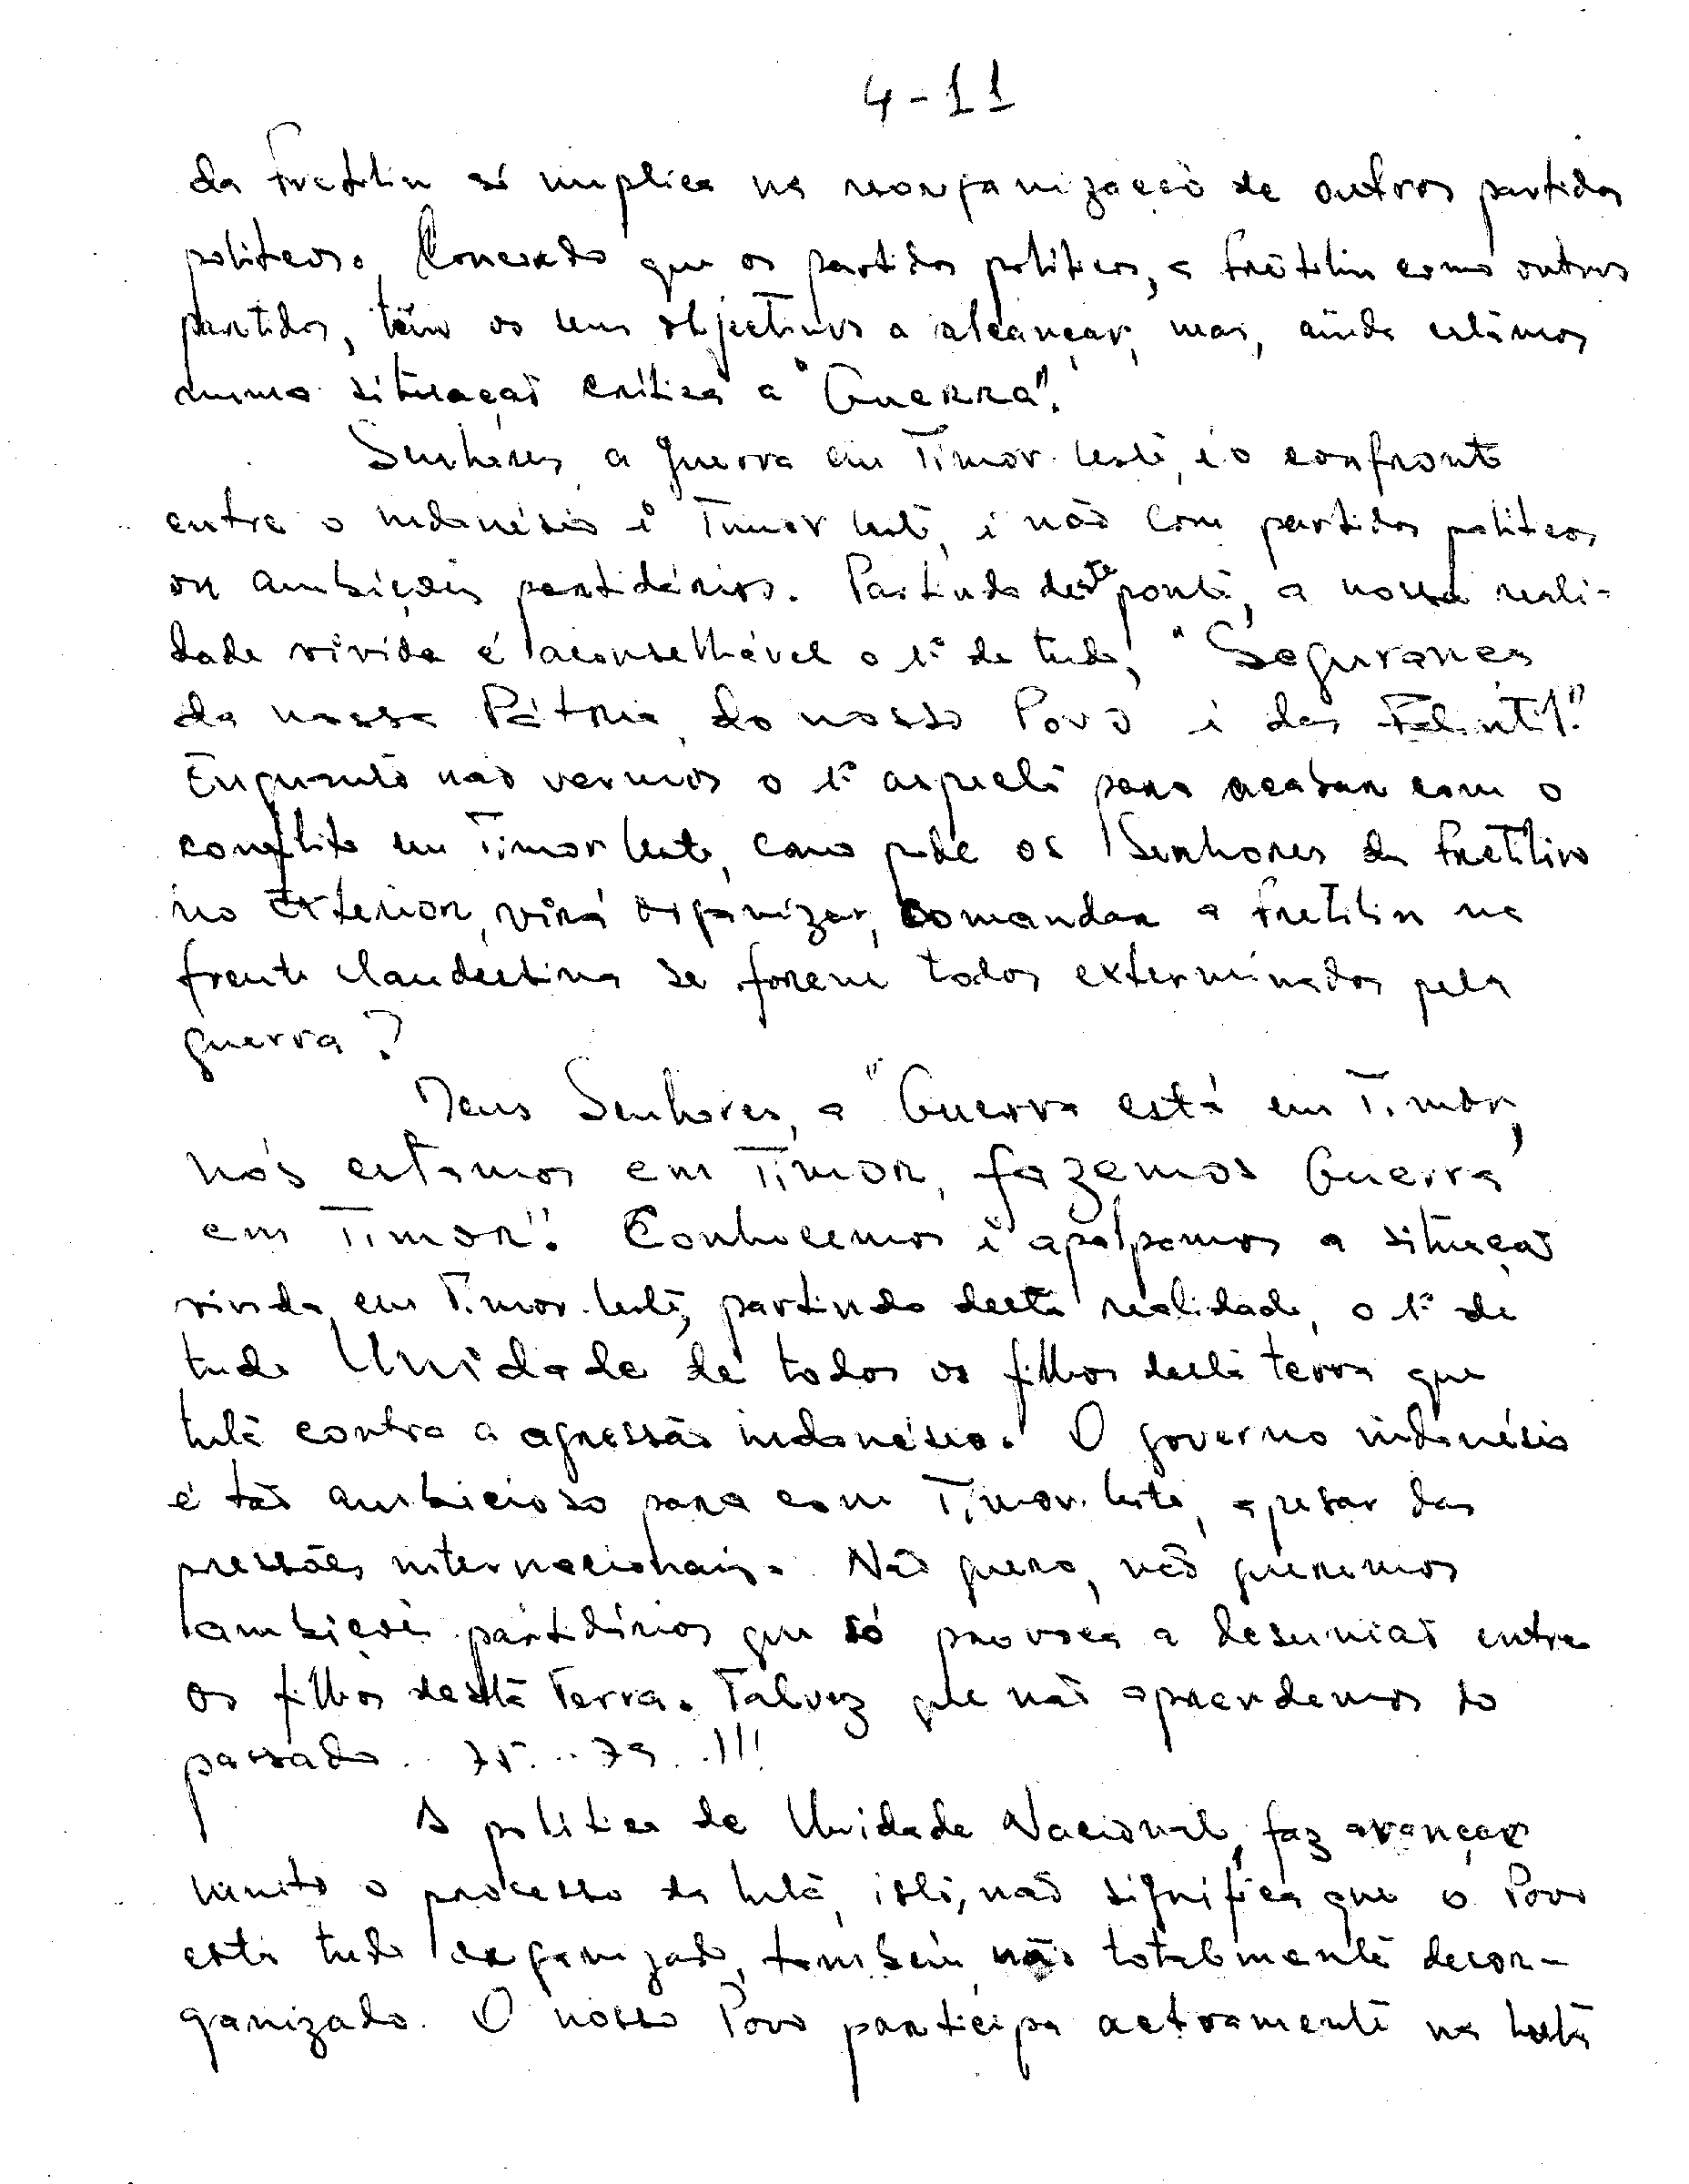 4-11
da Fretilin só implica na reorganização de outros partidos
politicos. Concordo que os partidos políticos, a Fretilin como outros
partidos, têm os seus objectivos a alcançar, mas, ainda estamos
numa situação critica a "Guerra".
Senhores, a guerra em Timor Leste, é o confronto
entre o indonésio e Timor Leste, e não com partidos politicos
ou ambições partidários. Partindo deste ponto, a nossa reali-
dade vivida é aconselhável o 1º de tudo, "Segurança
da nossa Pátria, do nosso Povo e das Falintil."
Enquanto não vermos o 1º aspecto para acabar com o
conflito em Timor Leste, como pode os Senhores da Fretilin
no Exterior, virá organizar, comandar a Fretilin na
frente clandestina se forem todos exterminados pela
guerra?
Meus Senhores, a "Guerra está em Timor,
nós estamos em Timor, fazemos Guerra
em Timor". Conhecemos e apalpamos a situação
vivida em Timor-Leste, partindo desta realidade, o 1º de
tudo Unidade de todos os filhos desta terra que
luta contra a agressão indonésia. O governo indonésio
é tão ambicioso para com Timor-Leste, apesar das
pressões internacionais. Não quero, não queremos
ambições partidários que só provoca a desunião entre
os filhos desta Terra. Talvez que não aprendemos do
passado.. 75...79..!!!
A política de Unidade Nacional, faz avançar
muito o processo da luta, isto, não significa que o Povo
está tudo organizado, também não totalmente desor-
ganizado. O nosso Povo participa activamente na luta